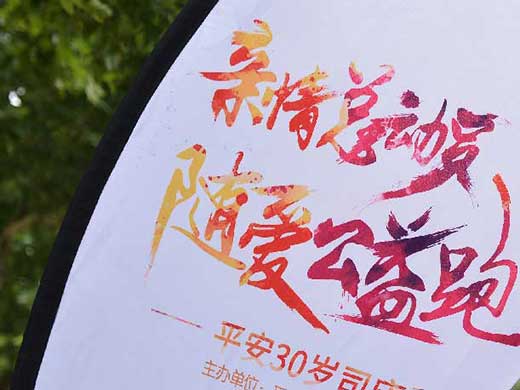 亲情总动员
随爱公益跑
平安30岁司庆
主办单位: